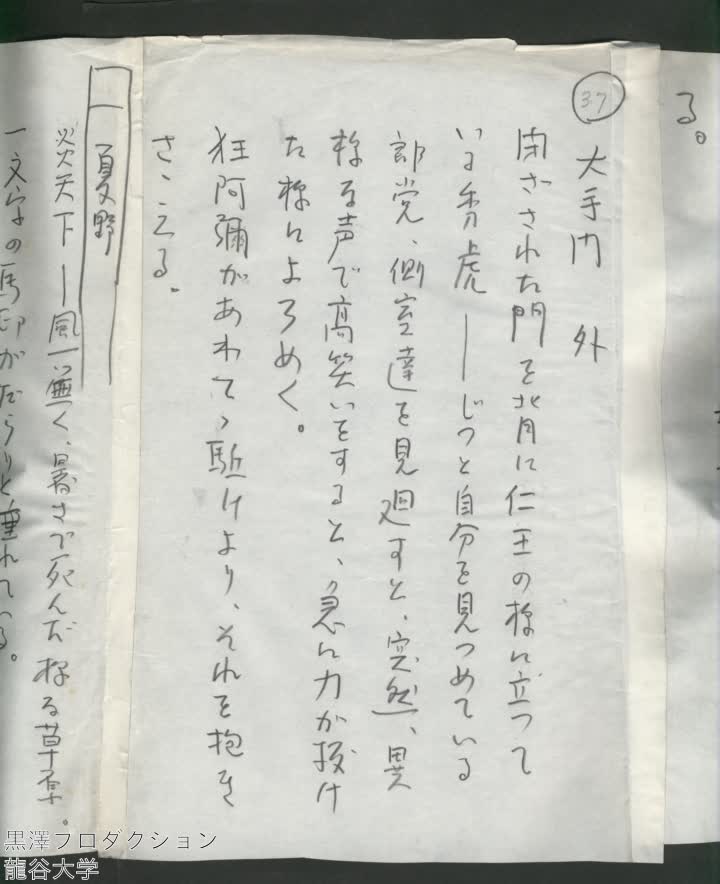 る。
37
大手門 外
閉ざされた門を背に仁王の様に立つて
いる秀虎――じつと自分を見つめている
郎党、側室達を見廻すと、突然、異
様な声で高笑いをすると、急に力が抜け
た様によろめく。
狂阿彌があわてゝ駈けより、それを抱き
さゝえる。
一 夏野
炎天下――風一ツ無く、暑さで死んだ様な草原。
一文字の馬印がだらりと垂れている。
黒澤プロダクション
龍谷大学